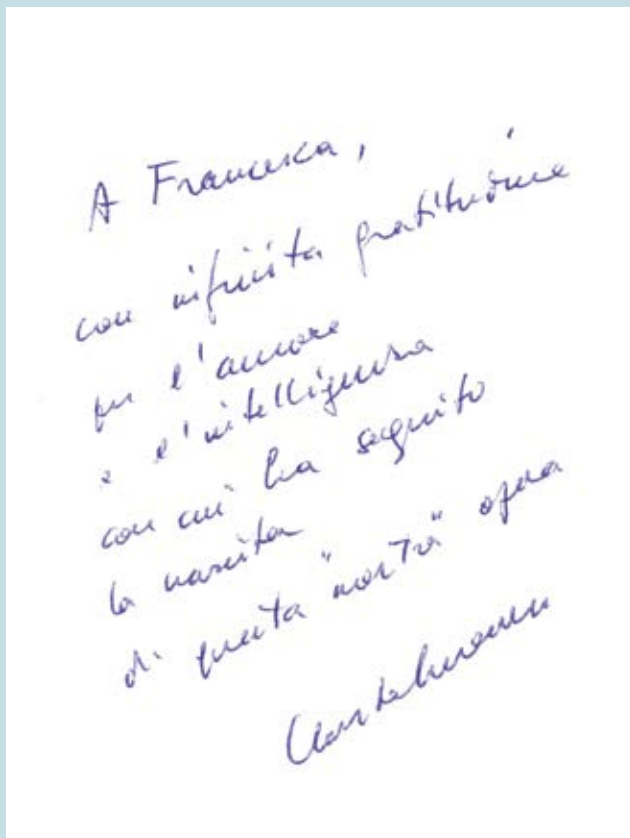 A Francesca,
con infinita gratitudine
per l'amore
e l'intelligenza
con cui ha seguito
la nascita
di questa "nostra" opera